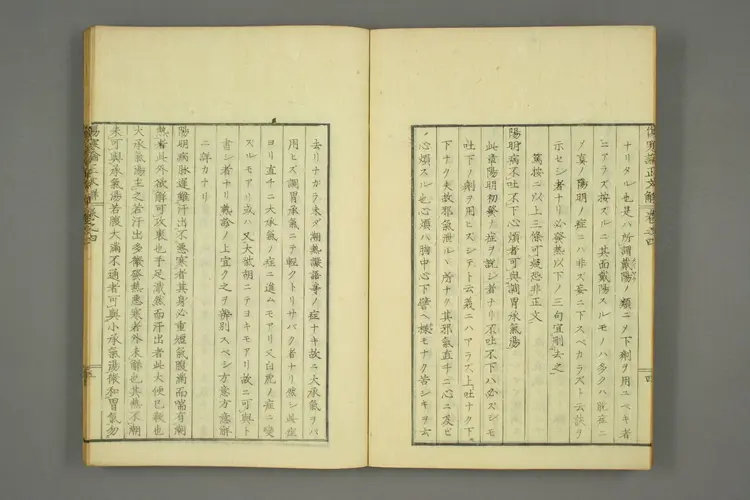 ナリタルヤ是ハ所謂戴陽ノ類ニメ下劑ヲ用ユベキ者
ニアラズ按スルニ其面戴陽スルモノハ多クハ
ノ真ノ陽明ノ症ニハ非ズ妄ニ下スベカラズト云訣ヲ
示セシ者ナリ必發熱以下ノ三句宜刪去之
篤按ニ以上三條可疑恐非正文
陽明病不吐不下心煩者可與調胃承氣湯
此章陽明初發ノ症ヲ說シ者ナリ不吐不下ハ必ズシモ
吐下ノ劑ヲ用ヒズシテト云義ニハアラズ上吐ナク下
下ナク夫故邪氣泄ルヽ所ナク其邪氣直チニ心ニ及ビ
心煩スル也心煩ハ胸中心下譬ヘ樣モナク苦シキヲ云
去リナガラ未ダ潮熱譫語等ノ症ナキ故ニ大承氣ヲバ
用ヒズ調胃承氣ニテ輕クトリサバク者ナリ然シ此症
ヨリ直チニ大承氣ノ症ニ進ムモアリ又白虎ノ症ニ變
スルモアリ或ハ又大柴胡ニテヨキモアリ故ニ可與ト
書シ者ナリ熟診ノ上宜ク之ヲ辨別スベシ方意方意解
ニ詳カナリ
陽明病脉遲雖汗出不惡寒者其身必重短氣腹滿而喘有潮
熱者此外欲解可攻裏也手足濈然而汗出者此大便已鞕也
大承氣湯主之若汗出多微發熱惡寒者外未解也其熱不潮
未可與承氣湯若腹大滿不通者可與小承氣湯微和胃氣勿
傷寒論正文解 卷之四
四